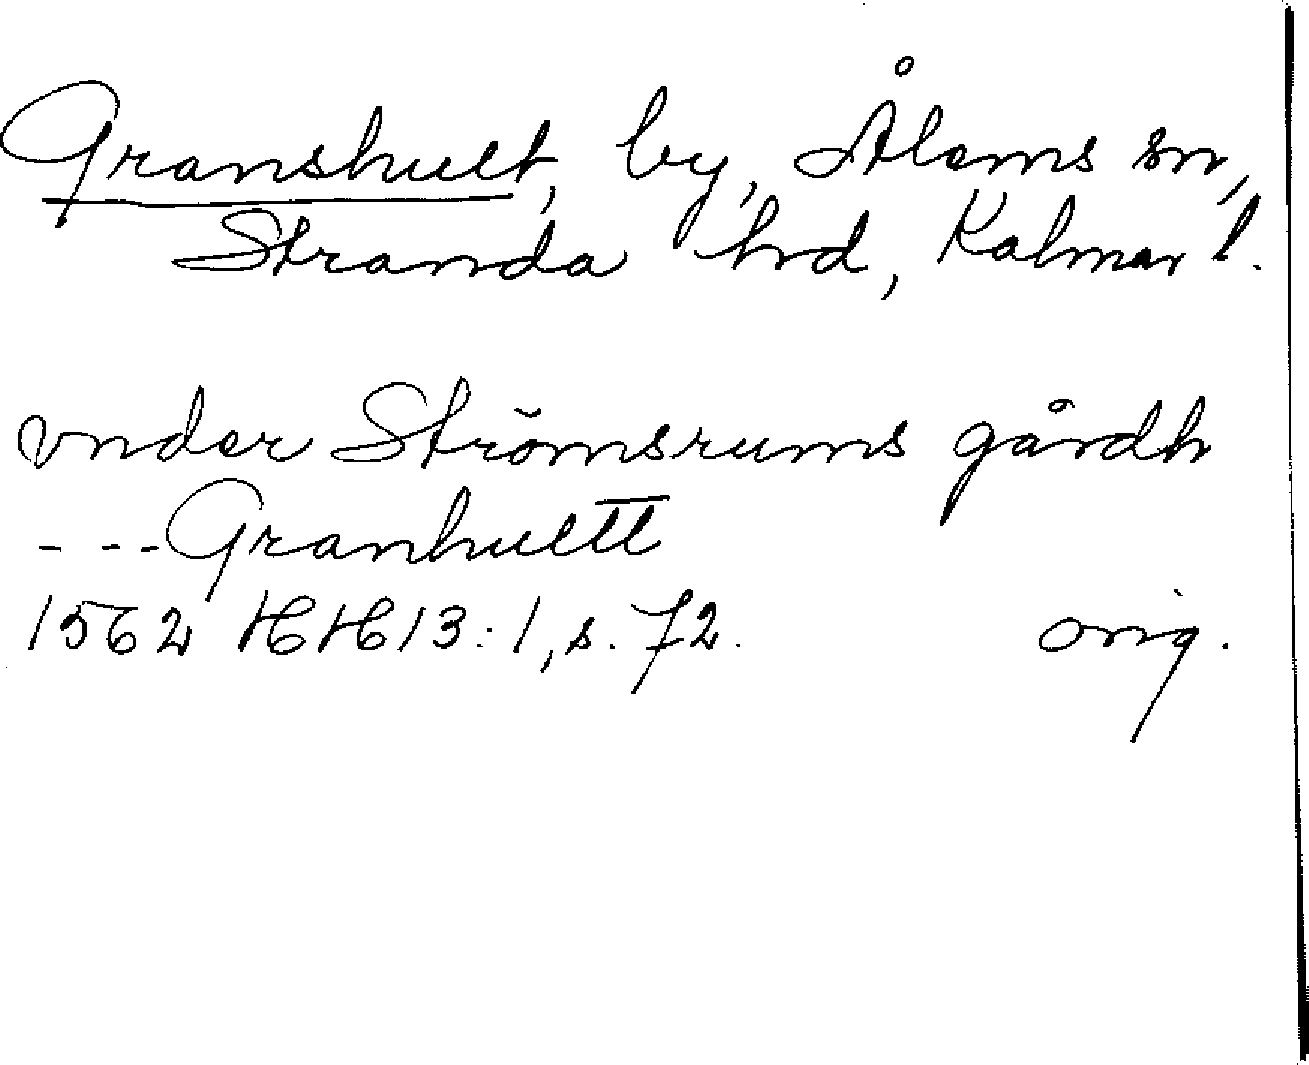 Granshult, by, Ålems sn,
Stranda hrd, Kalmar l.
vnder Strömsrums gårdh
---Granhultt
1562 HH13:1, s. 72. orig.